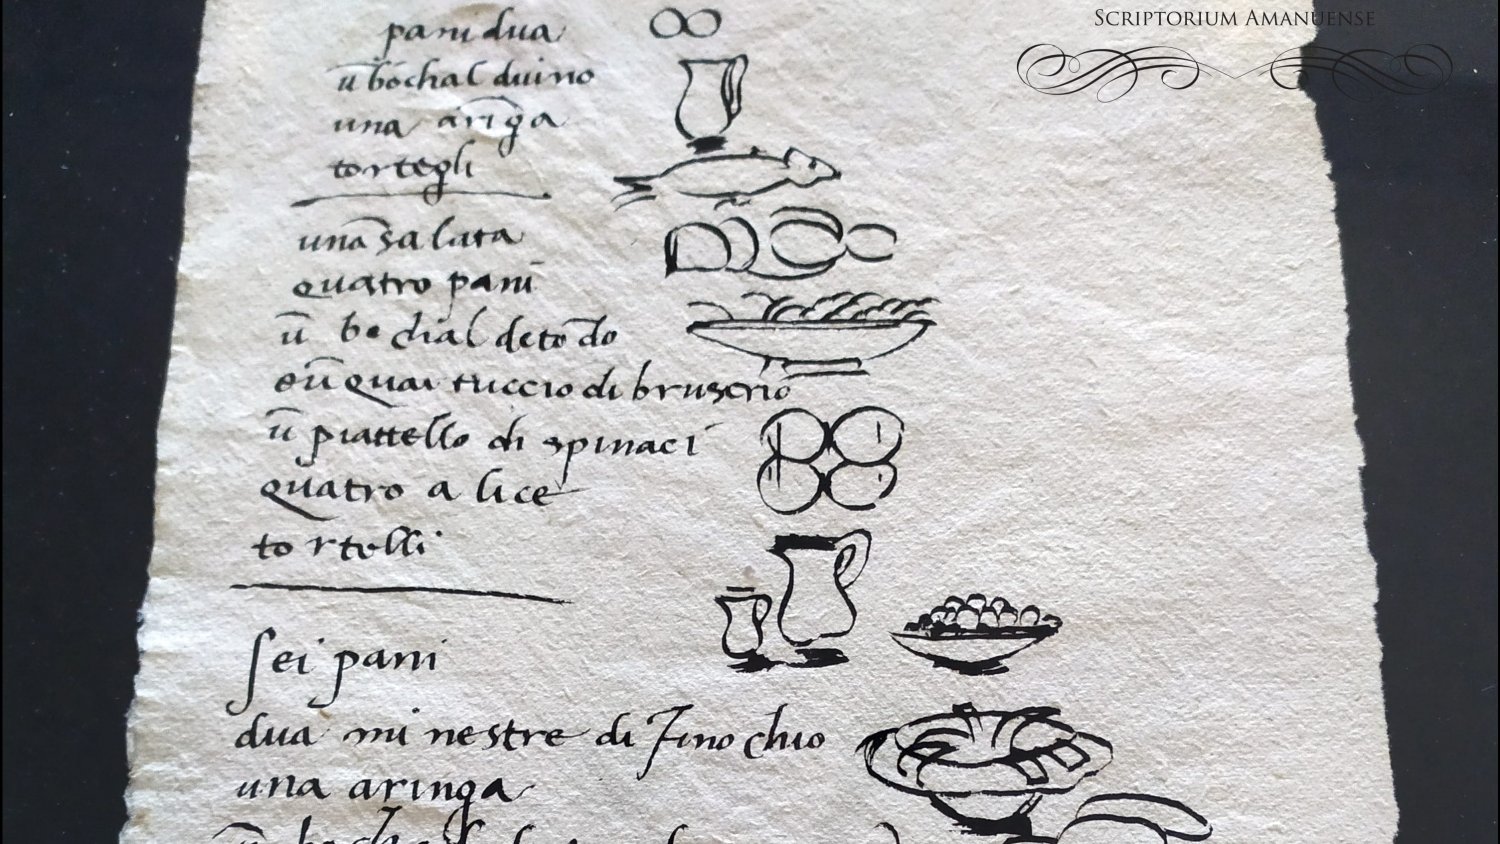 SCRIPTORIUM AMANUENSE
pani dua
ū bochal duino
una aringa
tortegli
una salata
quatro pani
ū bochal detōdo
eū quartuccio di bruscrio
ū piattello di spinaci
quatro alice
tortelli
sei pani
dua minestre di finochio
una aringa